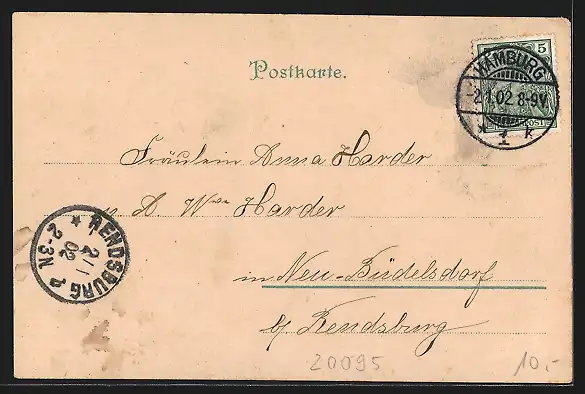 Postkarte.
5
HAMBURG
-2.1.02 8-9V.
* 1 k
Fräulein Anna Harder
A. Wwe Harder
in Neu-Büdelsdorf
b/ Rendsburg
RENDSBURG
2/1
02
2-3N
20095
10.-